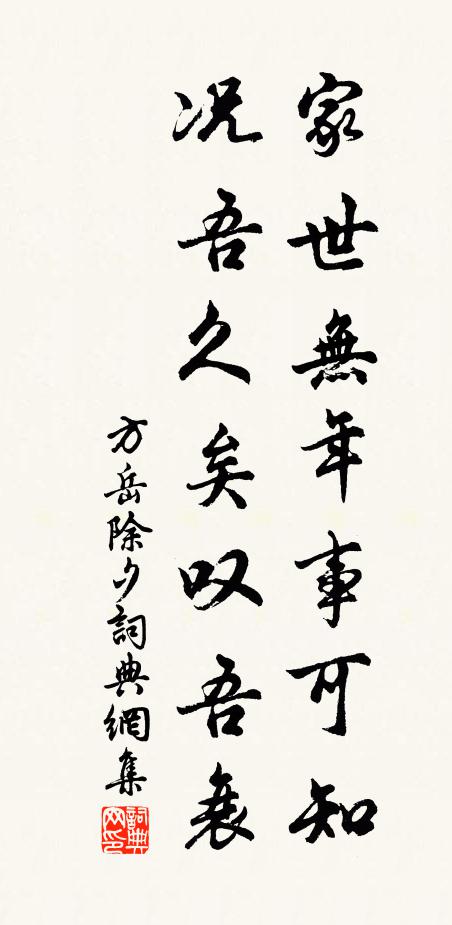 家世無年事可知
况吾久矣叹吾衰
方岳除夕詞典網集
詞典网印